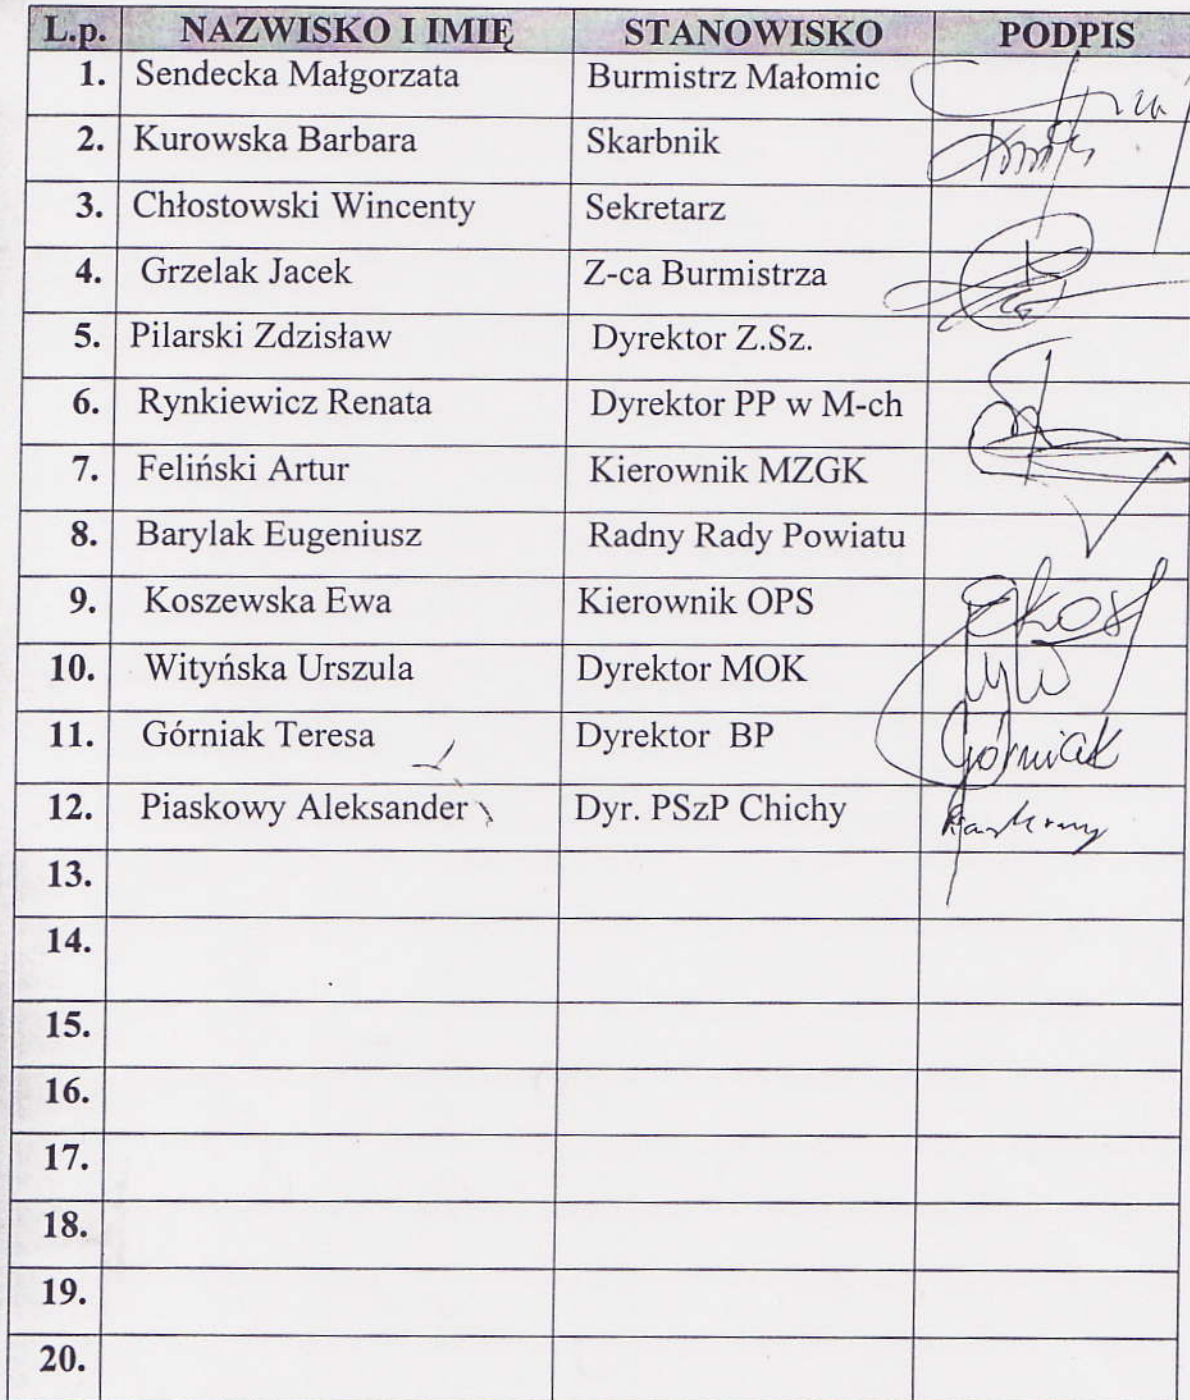 L.p. NAZWISKO I IMIĘ STANOWISKO PODPIS
1. Sendecka Małgorzata Burmistrz Małomic
2. Kurowska Barbara Skarbnik
3. Chłostowski Wincenty Sekretarz
4. Grzelak Jacek Z-ca Burmistrza
5. Pilarski Zdzisław Dyrektor Z.Sz.
6. Rynkiewicz Renata Dyrektor PP w M-ch
7. Feliński Artur Kierownik MZGK
8. Barylak Eugeniusz Radny Rady Powiatu
9. Koszewska Ewa Kierownik OPS
10. Wityńska Urszula Dyrektor MOK
11. Górniak Teresa Dyrektor BP Górniak
12. Piaskowy Aleksander Dyr. PSzP Chichy Piaskowy
13.
14.
15.
16.
17.
18.
19.
20.